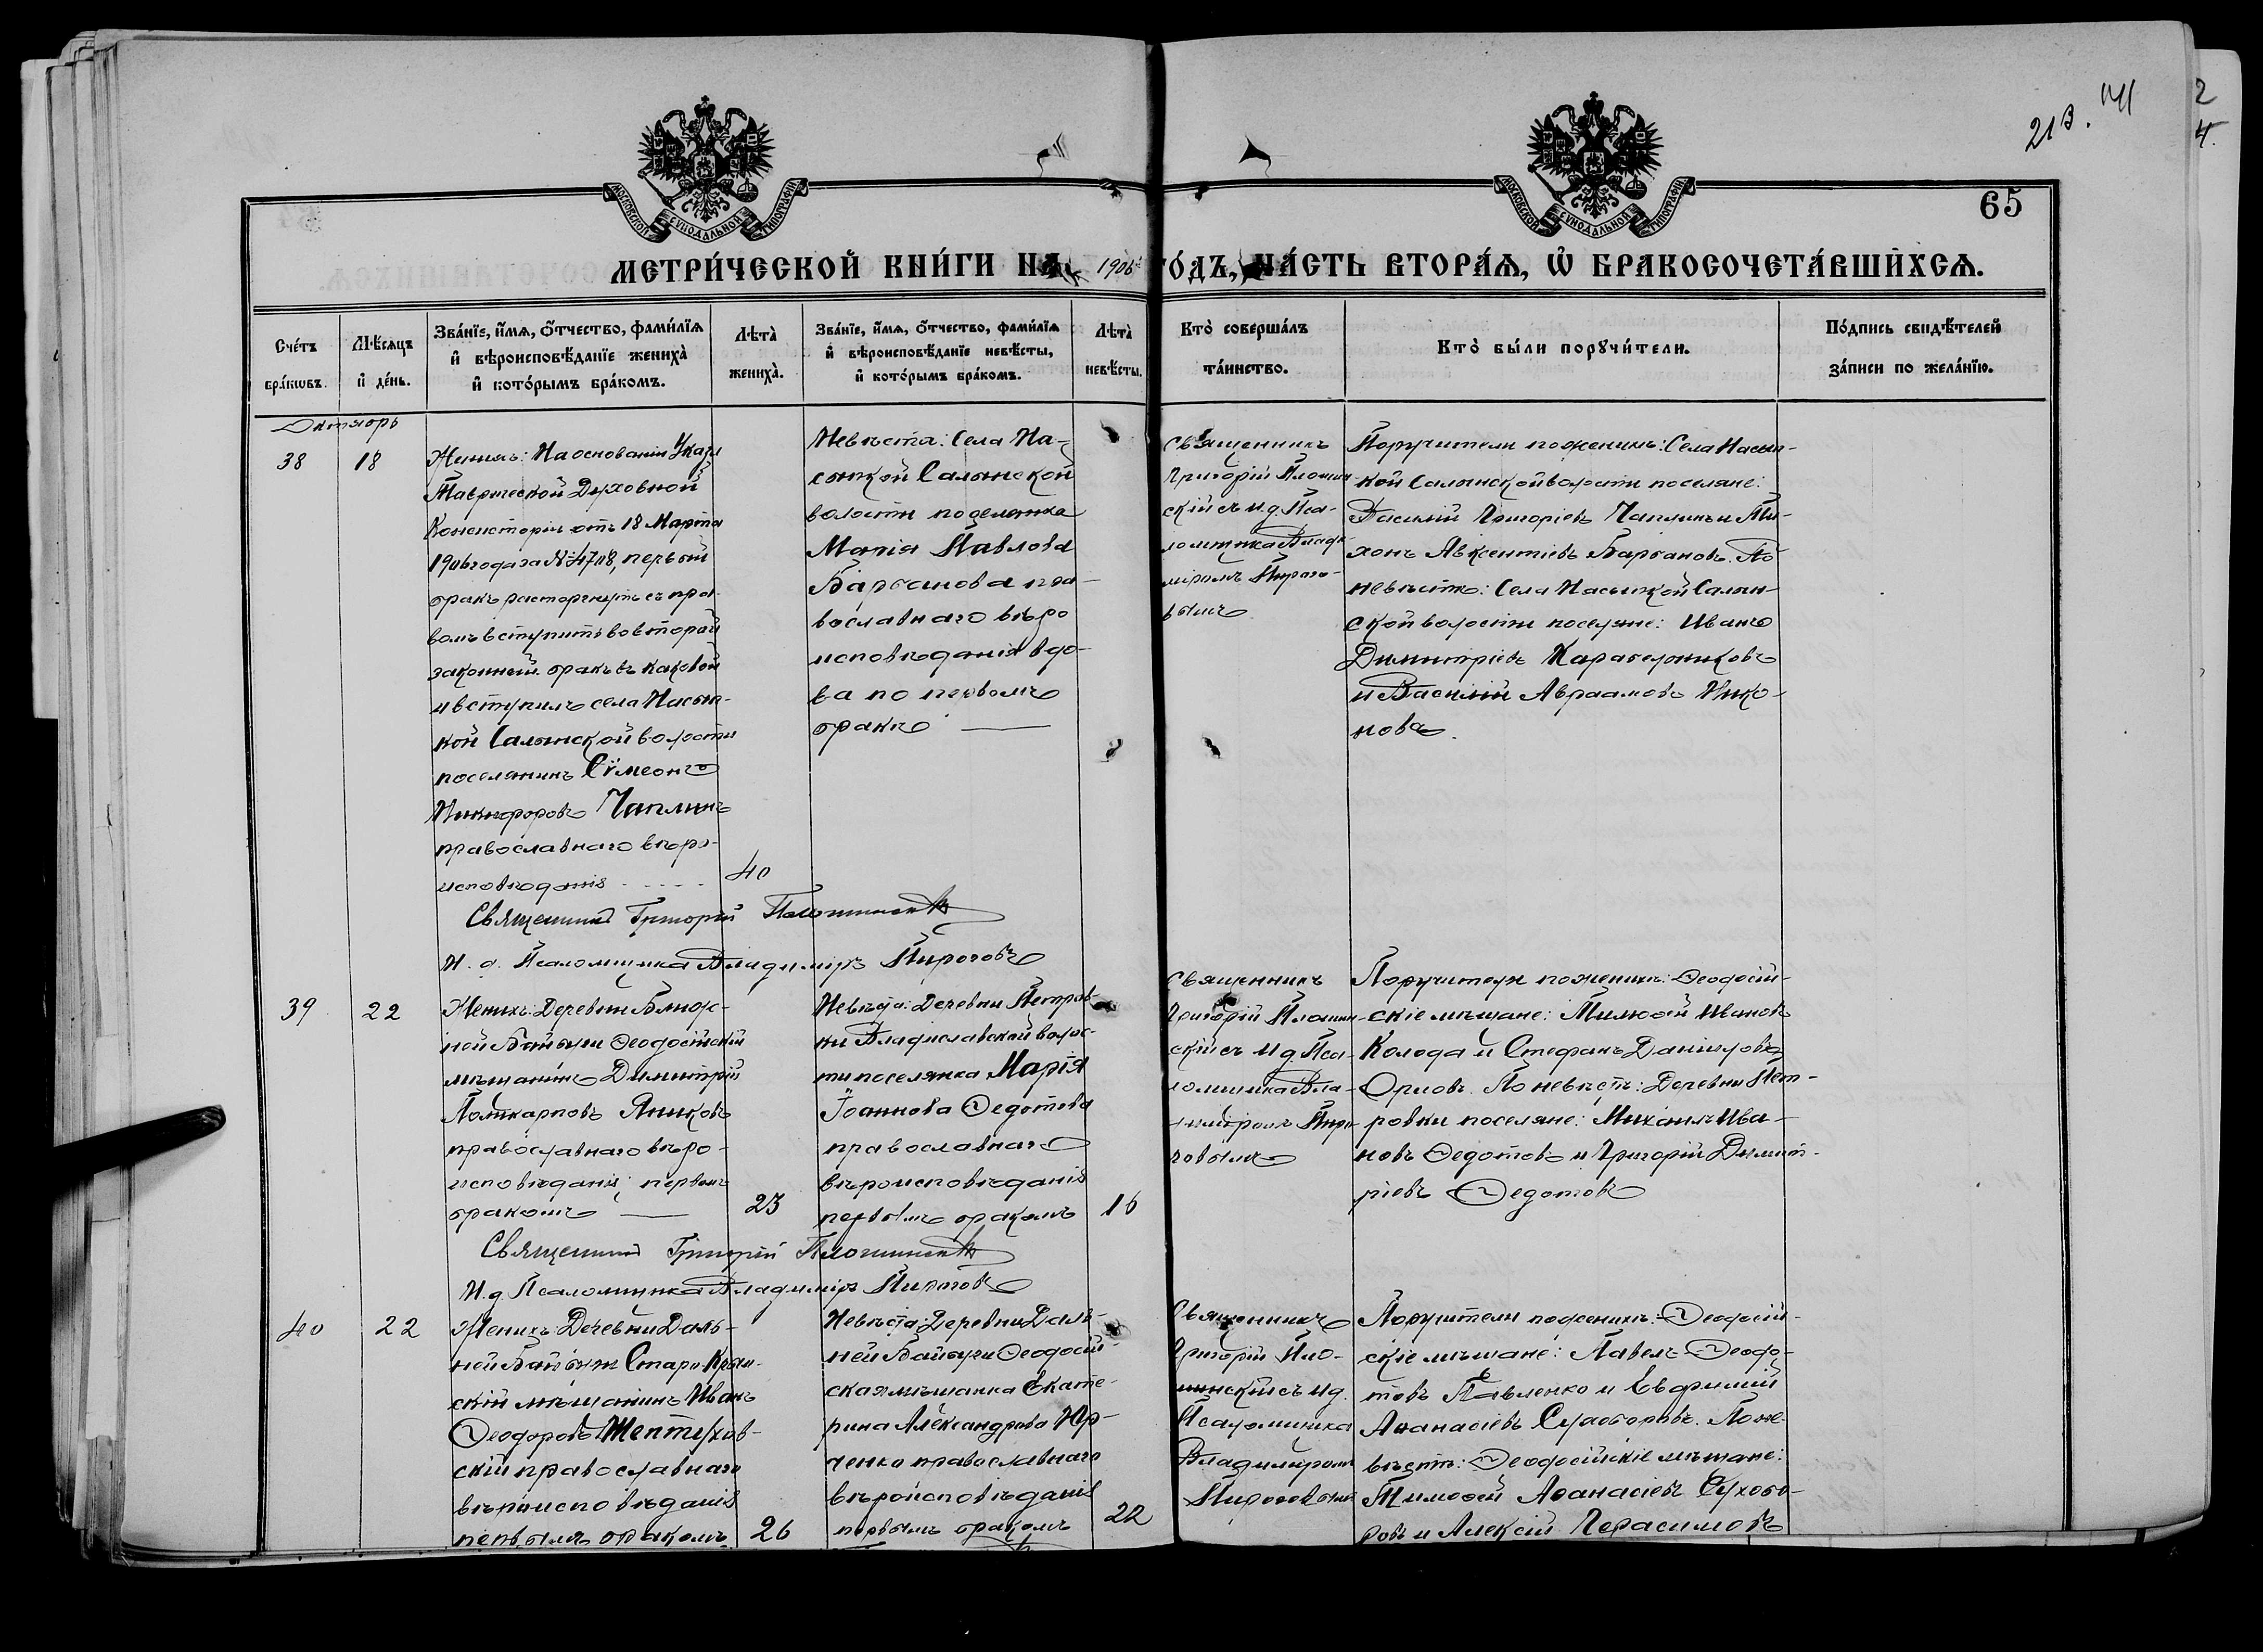 213.
2
4.
МОСКОВСКОЙ СѴНОДАЛЬНОЙ ТИПОГРАФІИ
МОСКОВСКОЙ СѴНОДАЛЬНОЙ ТИПОГРАФІИ
65
МЕТРИ́ЧЕСКОЙ КНИ́ГИ НА 1906 ГО́ДЪ, ЧА́СТЬ ВТОРА́Я, Ѡ БРАКОСОЧЕТА́ВШИХСЯ.
Сче́тъ бра́кѡвъ.
Мѣ́сяцъ и де́нь.
Зва́нїе, и́мя, о́тчество, фами́лїя и вѣроисповѣ́данїе жениха̀ и кото́рымъ бра́комъ.
Лѣта̀ жениха̀.
Зва́нїе, и́мя, о́тчество, фами́лїя и вѣроисповѣ́данїе невѣ́сты, и кото́рымъ бра́комъ.
Лѣта̀ невѣ́сты.
Кто̀ соверша́лъ та́инство.
Кто̀ бы́ли порꙋчи́тели.
По́дпись свидѣ́телей за́писи по жела́нїю.
Октябрь
38
18
Женихъ: На основаніи Указа
Таврической Духовной
Консисторіи отъ 18 Марта
1906 года за № 4708, первый
бракъ расторгнутъ съ пра-
вомъ вступить во второй
законный бракъ въ каковой
и вступилъ села Насып-
кой Салынской волости
поселянинъ Сѵмеонъ
Никифоровъ Чаплинъ
православнаго вѣро-
исповѣданія
40
Невѣста: Села На-
сыпкой Салынской
волости поселянка
Марія Павлова
Барбанова пра-
вославнаго вѣро
исповѣданія вдо-
ва по первомъ
бракѣ
Священникъ
Григорій Плошин-
скій съ и д. Пса-
ломщика Влади-
міромъ Пирого-
вымъ
Поручители по женихѣ: Села Насып-
кой Салынской волости поселяне:
Василій Григоріевъ Чаплинъ и Ти-
хонъ Авксентіевъ Барбановъ. По
невѣстѣ: Села Насыпкой Салын-
ской волости поселяне: Иванъ
Димитріевъ Карабельниковъ
и Василій Авраамовъ Нико-
новъ.
Священникъ Григорій Плошинскій
И. д. Псаломщика Владиміръ Пироговъ
39
22
Женихъ: Деревни Ближ-
ней Байбуги Ѳеодосійскій
мѣщанинъ Димитрій
Поликарповъ Яниковъ
православнаго вѣро-
исповѣданія, первымъ
бракомъ
23
Невѣста: Деревни Петров-
ки Владиславской волос-
ти поселянка Марія
Іоаннова Ѳедотова
православнаго
вѣроисповѣданія
первымъ бракомъ
16
Священникъ
Григорій Плошин-
скій съ И д. Пса-
ломщика Вла-
диміромъ Пиро-
говымъ
Поручители по женихѣ: Ѳеодосій-
скіе мѣщане: Тимоѳей Ивановъ
Колода и Стефанъ Даніиловъ
Орловъ. По невѣстѣ: Деревни Пет-
ровки поселяне: Михаилъ Ива-
новъ Ѳедотовъ и Григорій Димит-
ріевъ Ѳедотовъ
Священникъ Григорій Плошинскій
И. д. Псаломщика Владиміръ Пироговъ
40
22
Женихъ: Деревни Даль-
ней Байбуги Старо-Крым-
скій мѣщанинъ Иванъ
Ѳеодоровъ Шептухов-
скій православнаго
вѣроисповѣданія
первымъ бракомъ
26
Невѣста: Деревни Даль-
ней Байбуги Ѳеодосій-
ская мѣщанка Екате-
рина Александрова Юр-
ченко православнаго
вѣроисповѣданія
первымъ бракомъ
22
Священникъ
Григорій Пло-
шинскій съ и д.
Псаломщика
Владиміромъ
Пироговымъ
Поручители по женихѣ: Ѳеодосій-
скіе мѣщане: Павелъ Ѳеодо-
товъ Павленко и Евфимій
Аѳанасіевъ Сухоборовъ. По не-
вѣстѣ: Ѳеодосійскіе мѣщане:
Тимоѳей Аѳанасіевъ Сухобо-
ровъ и Алексій Герасимовъ